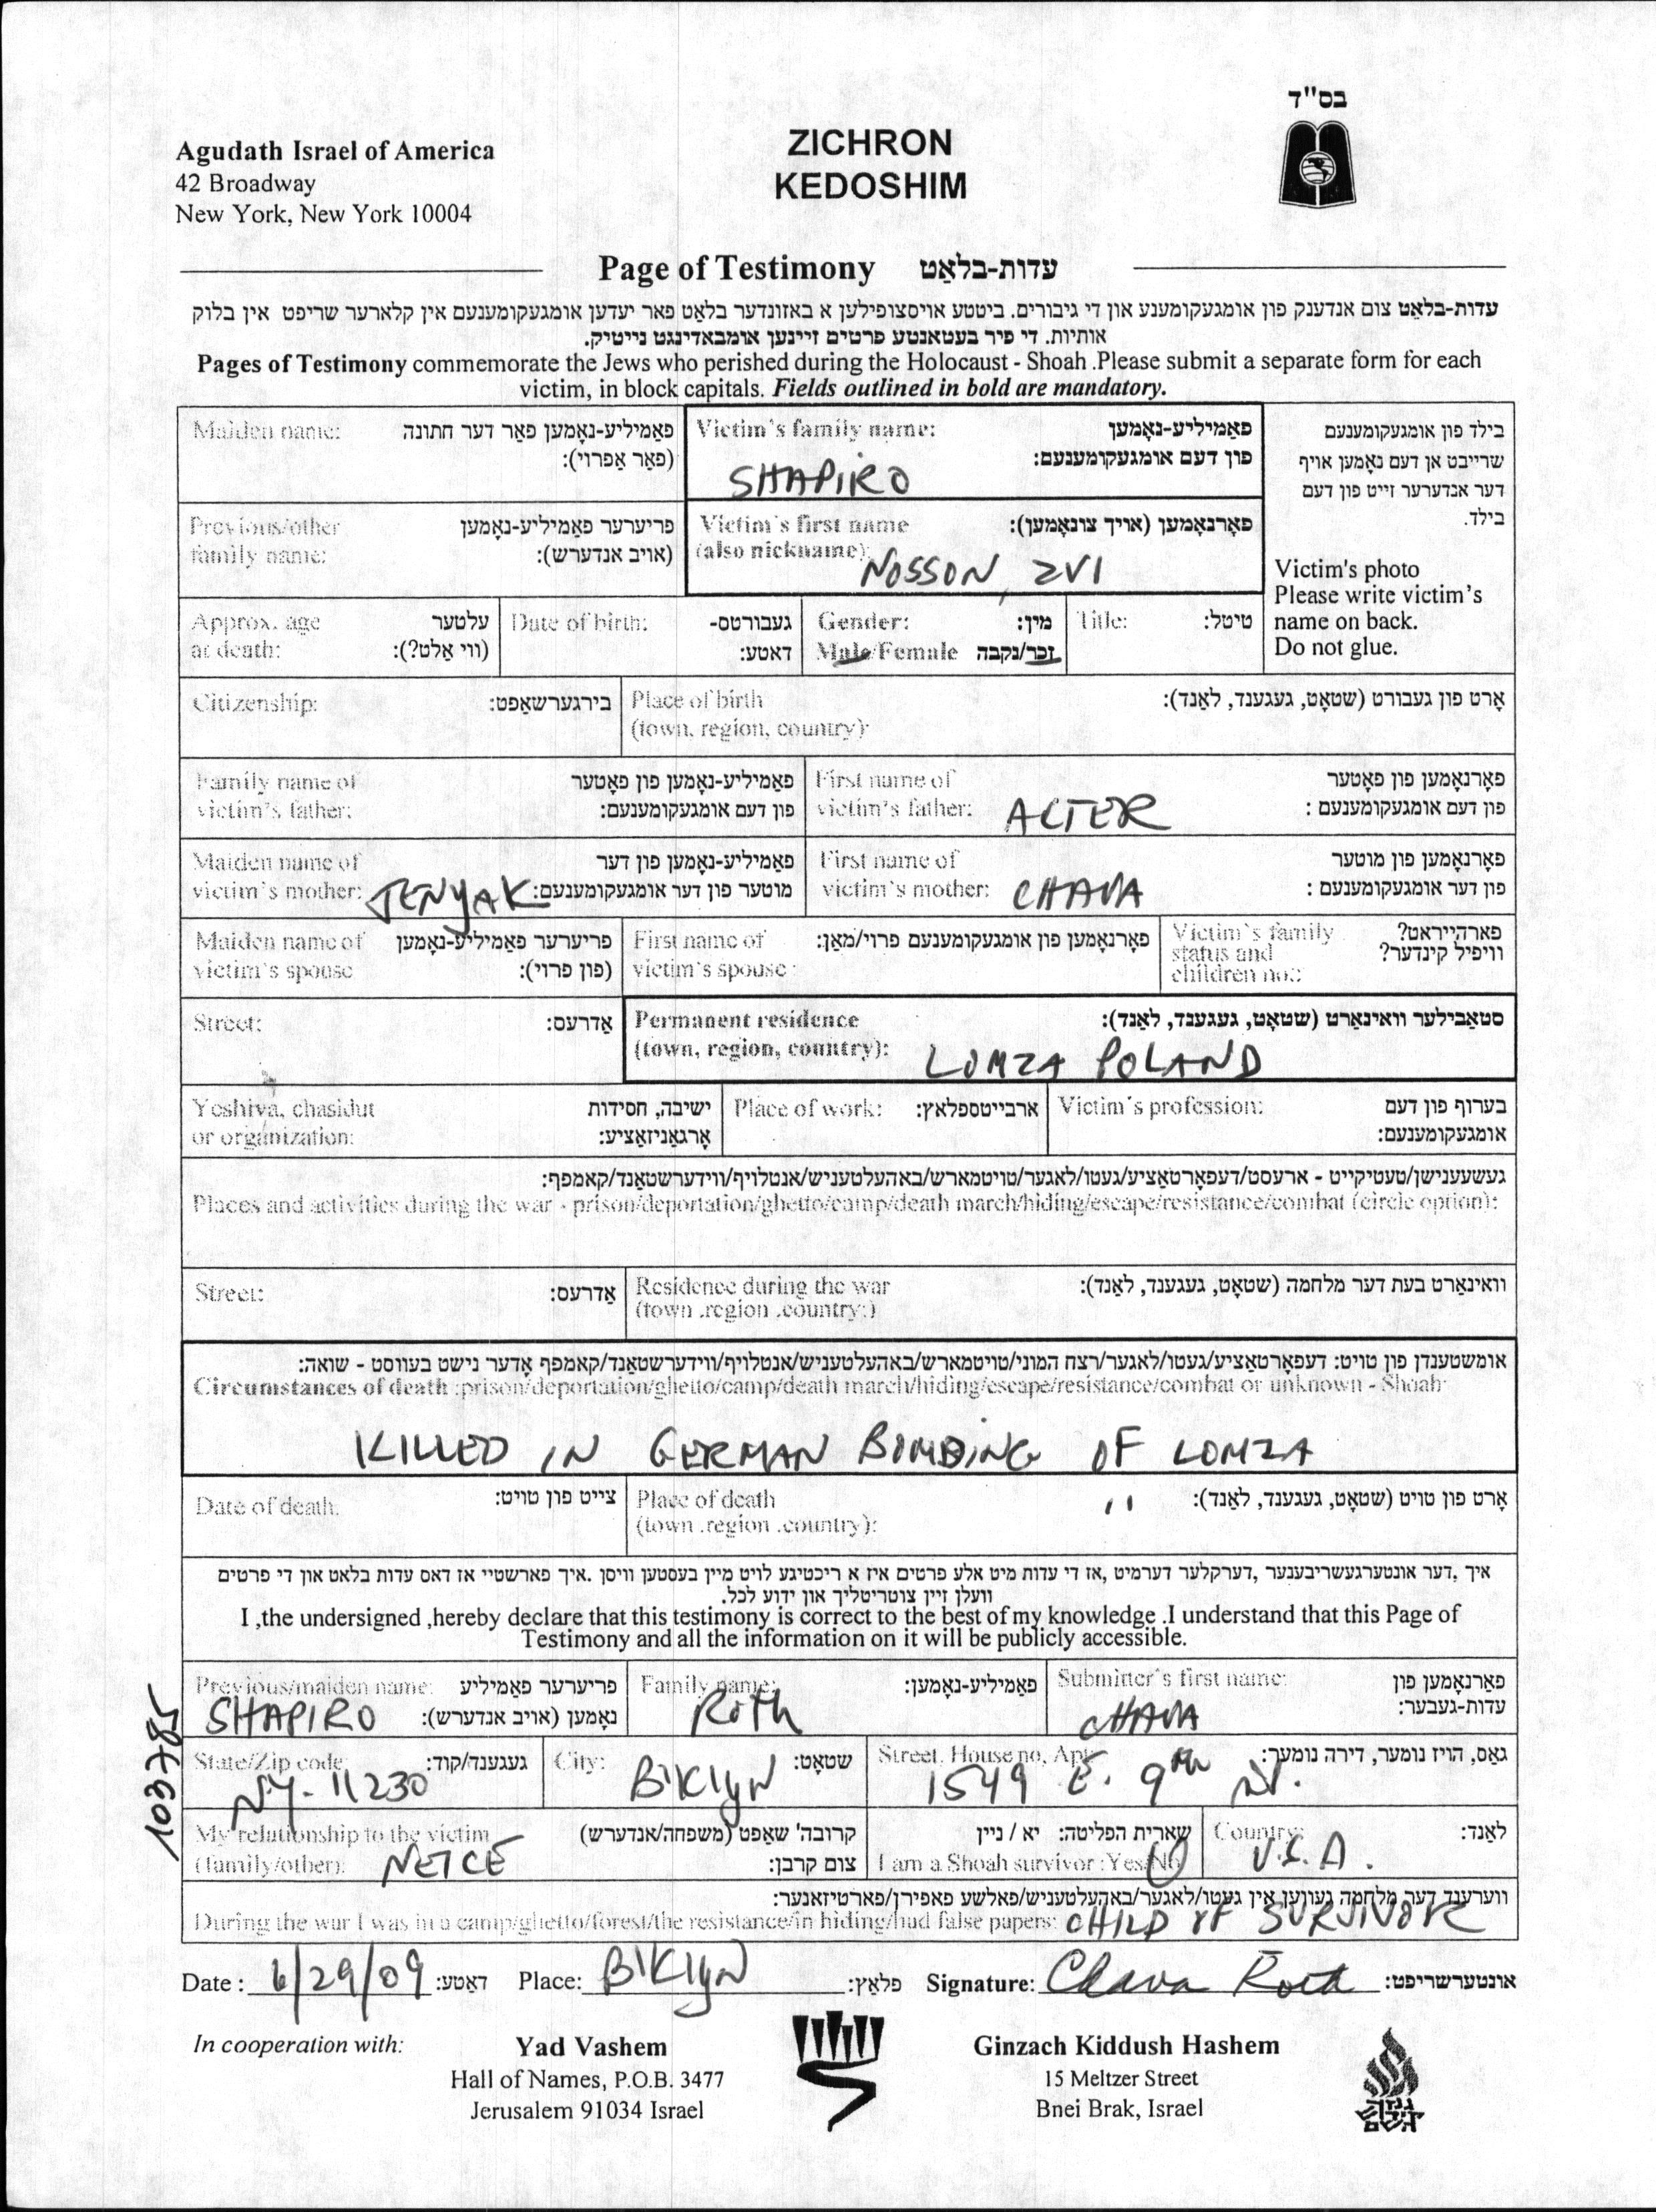 בס"ד
Agudath Israel of America
42 Broadway
New York, New York 10004
ZICHRON
KEDOSHIM
Page of Testimony עדות-בלאַט
עדות-בלאַט צום אנדענק פון אומגעקומענע און די גיבורים. ביטטע אויסצופילען א באזונדער בלאַט פאר יעדען אומגעקומענעם אין קלארער שריפט אין בלוק
אותיות. די פיר בעטאנטע פרטים זיינען אומבאדינגט נייטיק.
Pages of Testimony commemorate the Jews who perished during the Holocaust - Shoah .Please submit a separate form for each
victim, in block capitals. Fields outlined in bold are mandatory.
Maiden name: פאַמיליע-נאָמען פאַר דער חתונה
(פאַר אַפרוי):
Victim's family name: פאַמיליע-נאָמען
פון דעם אומגעקומענעם:
SHAPIRO
בילד פון אומגעקומענעם
שרייבט אן דעם נאָמען אויף
דער אנדערער זייט פון דעם
בילד.
Victim's photo
Please write victim's
name on back.
Do not glue.
Previous/other פריערער פאַמיליע-נאָמען
family name: (אויב אנדערש):
Victim's first name פאָרנאָמען (אויך צונאָמען):
(also nickname): NOSSON, ZVI
Approx. age עלטער
at death: (ווי אַלט?):
Date of birth: געבורטס-
דאטע:
Gender: מין:
Male/Female זכר/נקבה
Title: טיטל:
Citizenship: בירגערשאַפט:
Place of birth אָרט פון געבורט (שטאָט, געגענד, לאַנד):
(town, region, country):
Family name of פאַמיליע-נאָמען פון פאָטער
victim's father: פון דעם אומגעקומענעם:
First name of פאָרנאָמען פון פאָטער
victim's father: ALTER פון דעם אומגעקומענעם :
Maiden name of פאַמיליע-נאָמען פון דער
victim's mother: JENYAK מוטער פון דער אומגעקומענעם:
First name of פאָרנאָמען פון מוטער
victim's mother: CHAVA פון דער אומגעקומענעם :
Maiden name of פריערער פאַמיליע-נאָמען
victim's spouse (פון פרוי):
First name of פאָרנאָמען פון אומגעקומענעם פרוי/מאַן:
victim's spouse :
Victim's family פארהייראט?
status and וויפיל קינדער?
children no.:
Street: אַדרעס:
Permanent residence סטאַבילער וואינאַרט (שטאָט, געגענד, לאַנד):
(town, region, country): LOMZA POLAND
Yeshiva, chasidut ישיבה, חסידות
or organization: אָרגאַניזאַציע:
Place of work: ארבייטספלאץ:
Victim's profession: בערוף פון דעם
אומגעקומענעם:
געשעענישן/טעטיקייט - ארעסט/דעפאָרטאַציע/געטו/לאגער/טויטמארש/באהעלטעניש/אנטלויף/ווידערשטאַנד/קאמפף:
Places and activities during the war - prison/deportation/ghetto/camp/death march/hiding/escape/resistance/combat (circle option):
Street: אַדרעס:
Residence during the war וואינאַרט בעת דער מלחמה (שטאָט, געגענד, לאַנד):
(town .region .country:)
אומשטענדן פון טויט: דעפאָרטאַציע/געטו/לאגער/רצח המוני/טויטמארש/באהעלטעניש/אנטלויף/ווידערשטאַנד/קאמפף אָדער נישט בעווסט - שואה:
Circumstances of death :prison/deportation/ghetto/camp/death march/hiding/escape/resistance/combat or unknown - Shoah:
KILLED IN GERMAN BOMBING OF LOMZA
Date of death: צייט פון טויט:
Place of death " אָרט פון טויט (שטאָט, געגענד, לאַנד):
(town .region .country):
איך ,דער אונטערגעשריבענער ,דערקלער דערמיט ,אז די עדות מיט אלע פרטים איז א ריכטיגע לויט מיין בעסטען וויסן .איך פארשטיי אז דאס עדות בלאט און די פרטים
וועלן זיין צוטריטליך און ידוע לכל.
I ,the undersigned ,hereby declare that this testimony is correct to the best of my knowledge .I understand that this Page of
Testimony and all the information on it will be publicly accessible.
Previous/maiden name: פריערער פאַמיליע
SHAPIRO נאָמען (אויב אנדערש):
Family name: פאַמיליע-נאָמען:
Roth
Submitter's first name: פאַרנאָמען פון
עדות-געבער:
CHAVA
State/Zip code: געגענד/קוד:
NY. 11230
City: שטאָט:
B'KLYN
Street, House no, Apt: גאַס, הויז נומער, דירה נומער:
1549 E. 9th St.
My relationship to the victim קרובה' שאַפט (משפחה/אנדערש)
(family/other): NEICE צום קרבן:
שארית הפליטה: יא / ניין
I am a Shoah survivor :Yes/No
Country: לאַנד:
U.S.A.
ווערענד דער מלחמה געווען אין געטו/לאגער/באהעלטעניש/פאלשע פאפירן/פארטיזאנער:
During the war I was in a camp/ghetto/forest/the resistance/in hiding/had false papers: CHILD OF SURVIVOR
103785
Date : 6/29/09 דאטע: Place: B'KLYN פלאַץ: Signature: Chava Roth אונטערשריפט:
In cooperation with:
Yad Vashem
Hall of Names, P.O.B. 3477
Jerusalem 91034 Israel
Ginzach Kiddush Hashem
15 Meltzer Street
Bnei Brak, Israel